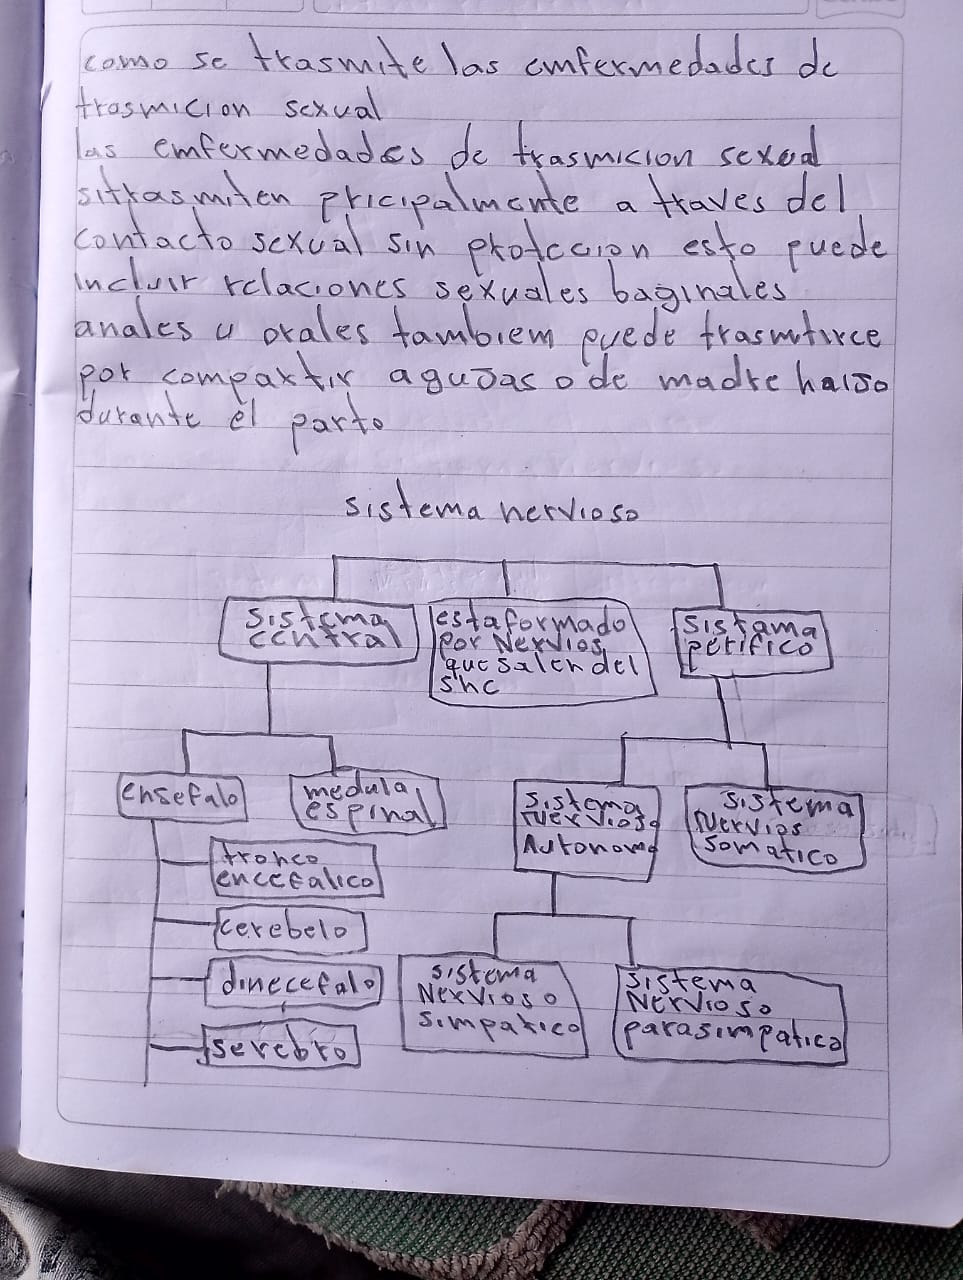 como se trasmite las emfermedades de
trasmicion sexual
las emfermedades de trasmicion sexual
sitrasmiten pricipalmente a traves del
contacto sexual sin proteccion esto puede
incluir relaciones sexuales baginales
anales u orales tambiem puede trasmitirce
por compartir agujas o de madre haijo
durante el parto
sistema nervioso
sistema
central
estaformado
por Nervios
que salen del
snc
sistama
perifico
ensefalo
medula
espinal
sistema
nervioso
Autonomo
sistema
nervios
somatico
tronco
encefalico
cerebelo
dinecefalo
serebro
sistema
Nervioso
simpatico
sistema
Nervioso
parasimpatico